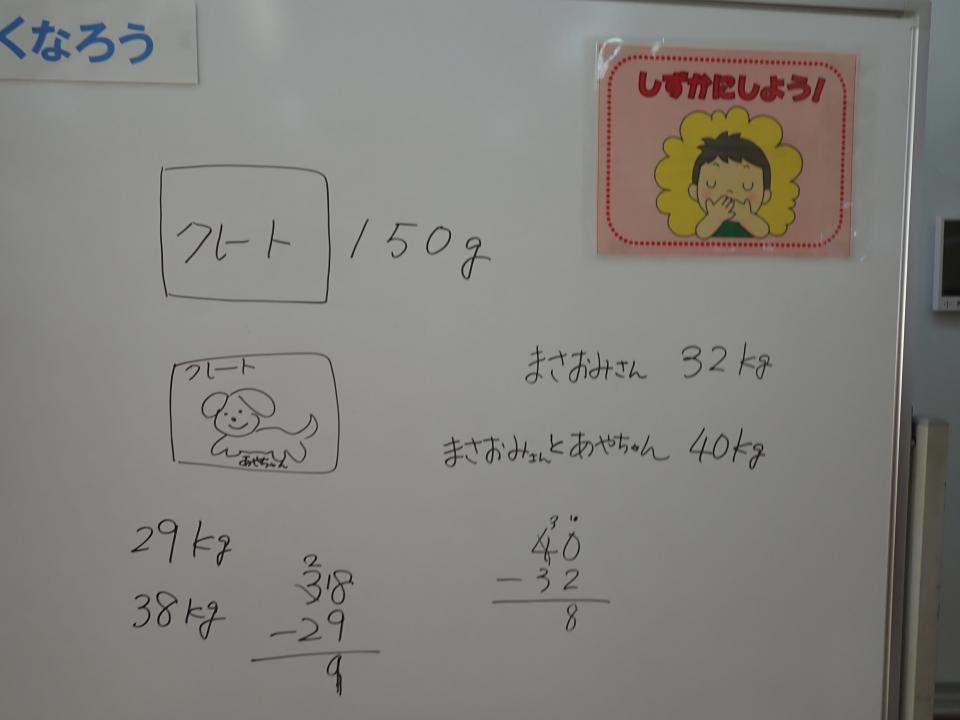 くなろう
しずかにしよう!
クレート 150g
クレート
あやちゃん
まさおみさん 32kg
まさおみさんとあやちゃん 40kg
29kg
38kg
2
318
-29
9
3 10
40
-32
8